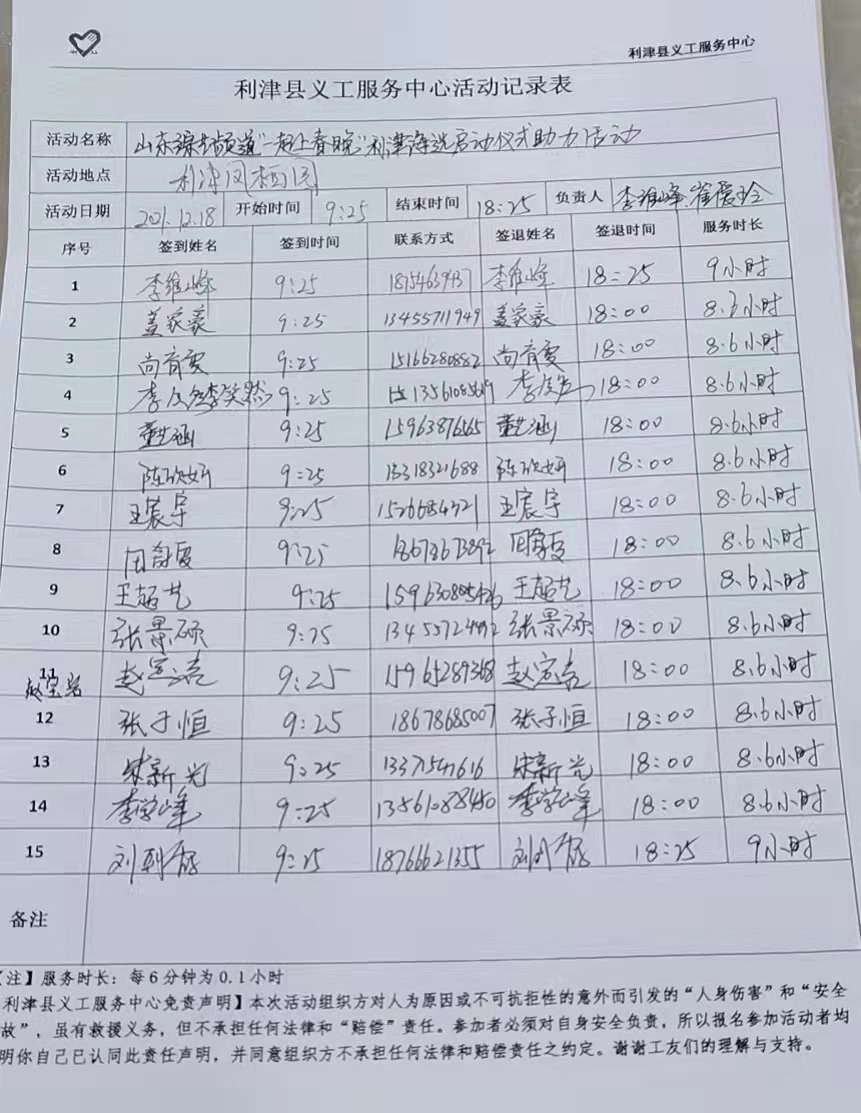 利津县义工服务中心
利津县义工服务中心活动记录表
活动名称 山东综艺频道"一起上春晚"利津海选启动仪式助力活动
活动地点 利津凤栖园
活动日期 2021.12.18 开始时间 9:25 结束时间 18:25 负责人 李维峰 崔爱玲
序号 签到姓名 签到时间 联系方式 签退姓名 签退时间 服务时长
1 李维峰 9:25 李维峰 18:25 9小时
2 盖家豪 9:25 13455711949 盖家豪 18:00 8.6小时
3 尚育雯 9:25 15166280882 尚育雯 18:00 8.6小时
4 9:25 18:00 8.6小时
5 董艺涵 9:25 15963876565 董艺涵 18:00 8.6小时
6 陈欣妍 9:25 陈欣妍 18:00 8.6小时
7 王宸宇 9:25 王宸宇 18:00 8.6小时
8 9:25 18:00 8.6小时
9 王超艺 9:25 王超艺 18:00 8.6小时
10 张景硕 9:25 张景硕 18:00 8.6小时
11 9:25 15965289368 18:00 8.6小时
12 张子恒 9:25 18678685007 张子恒 18:00 8.6小时
13 宋新光 9:25 宋新光 18:00 8.6小时
14 李学峰 9:25 13561088450 李学峰 18:00 8.6小时
15 9:25 18766621355 18:25 9小时
备注
注】服务时长：每6分钟为0.1小时
利津县义工服务中心免责声明】本次活动组织方对人为原因或不可抗拒性的意外而引发的“人身伤害”和“安全
故”，虽有救援义务，但不承担任何法律和“赔偿”责任。参加者必须对自身安全负责，所以报名参加活动者均
明你自己已认同此责任声明，并同意组织方不承担任何法律和赔偿责任之约定。谢谢工友们的理解与支持。